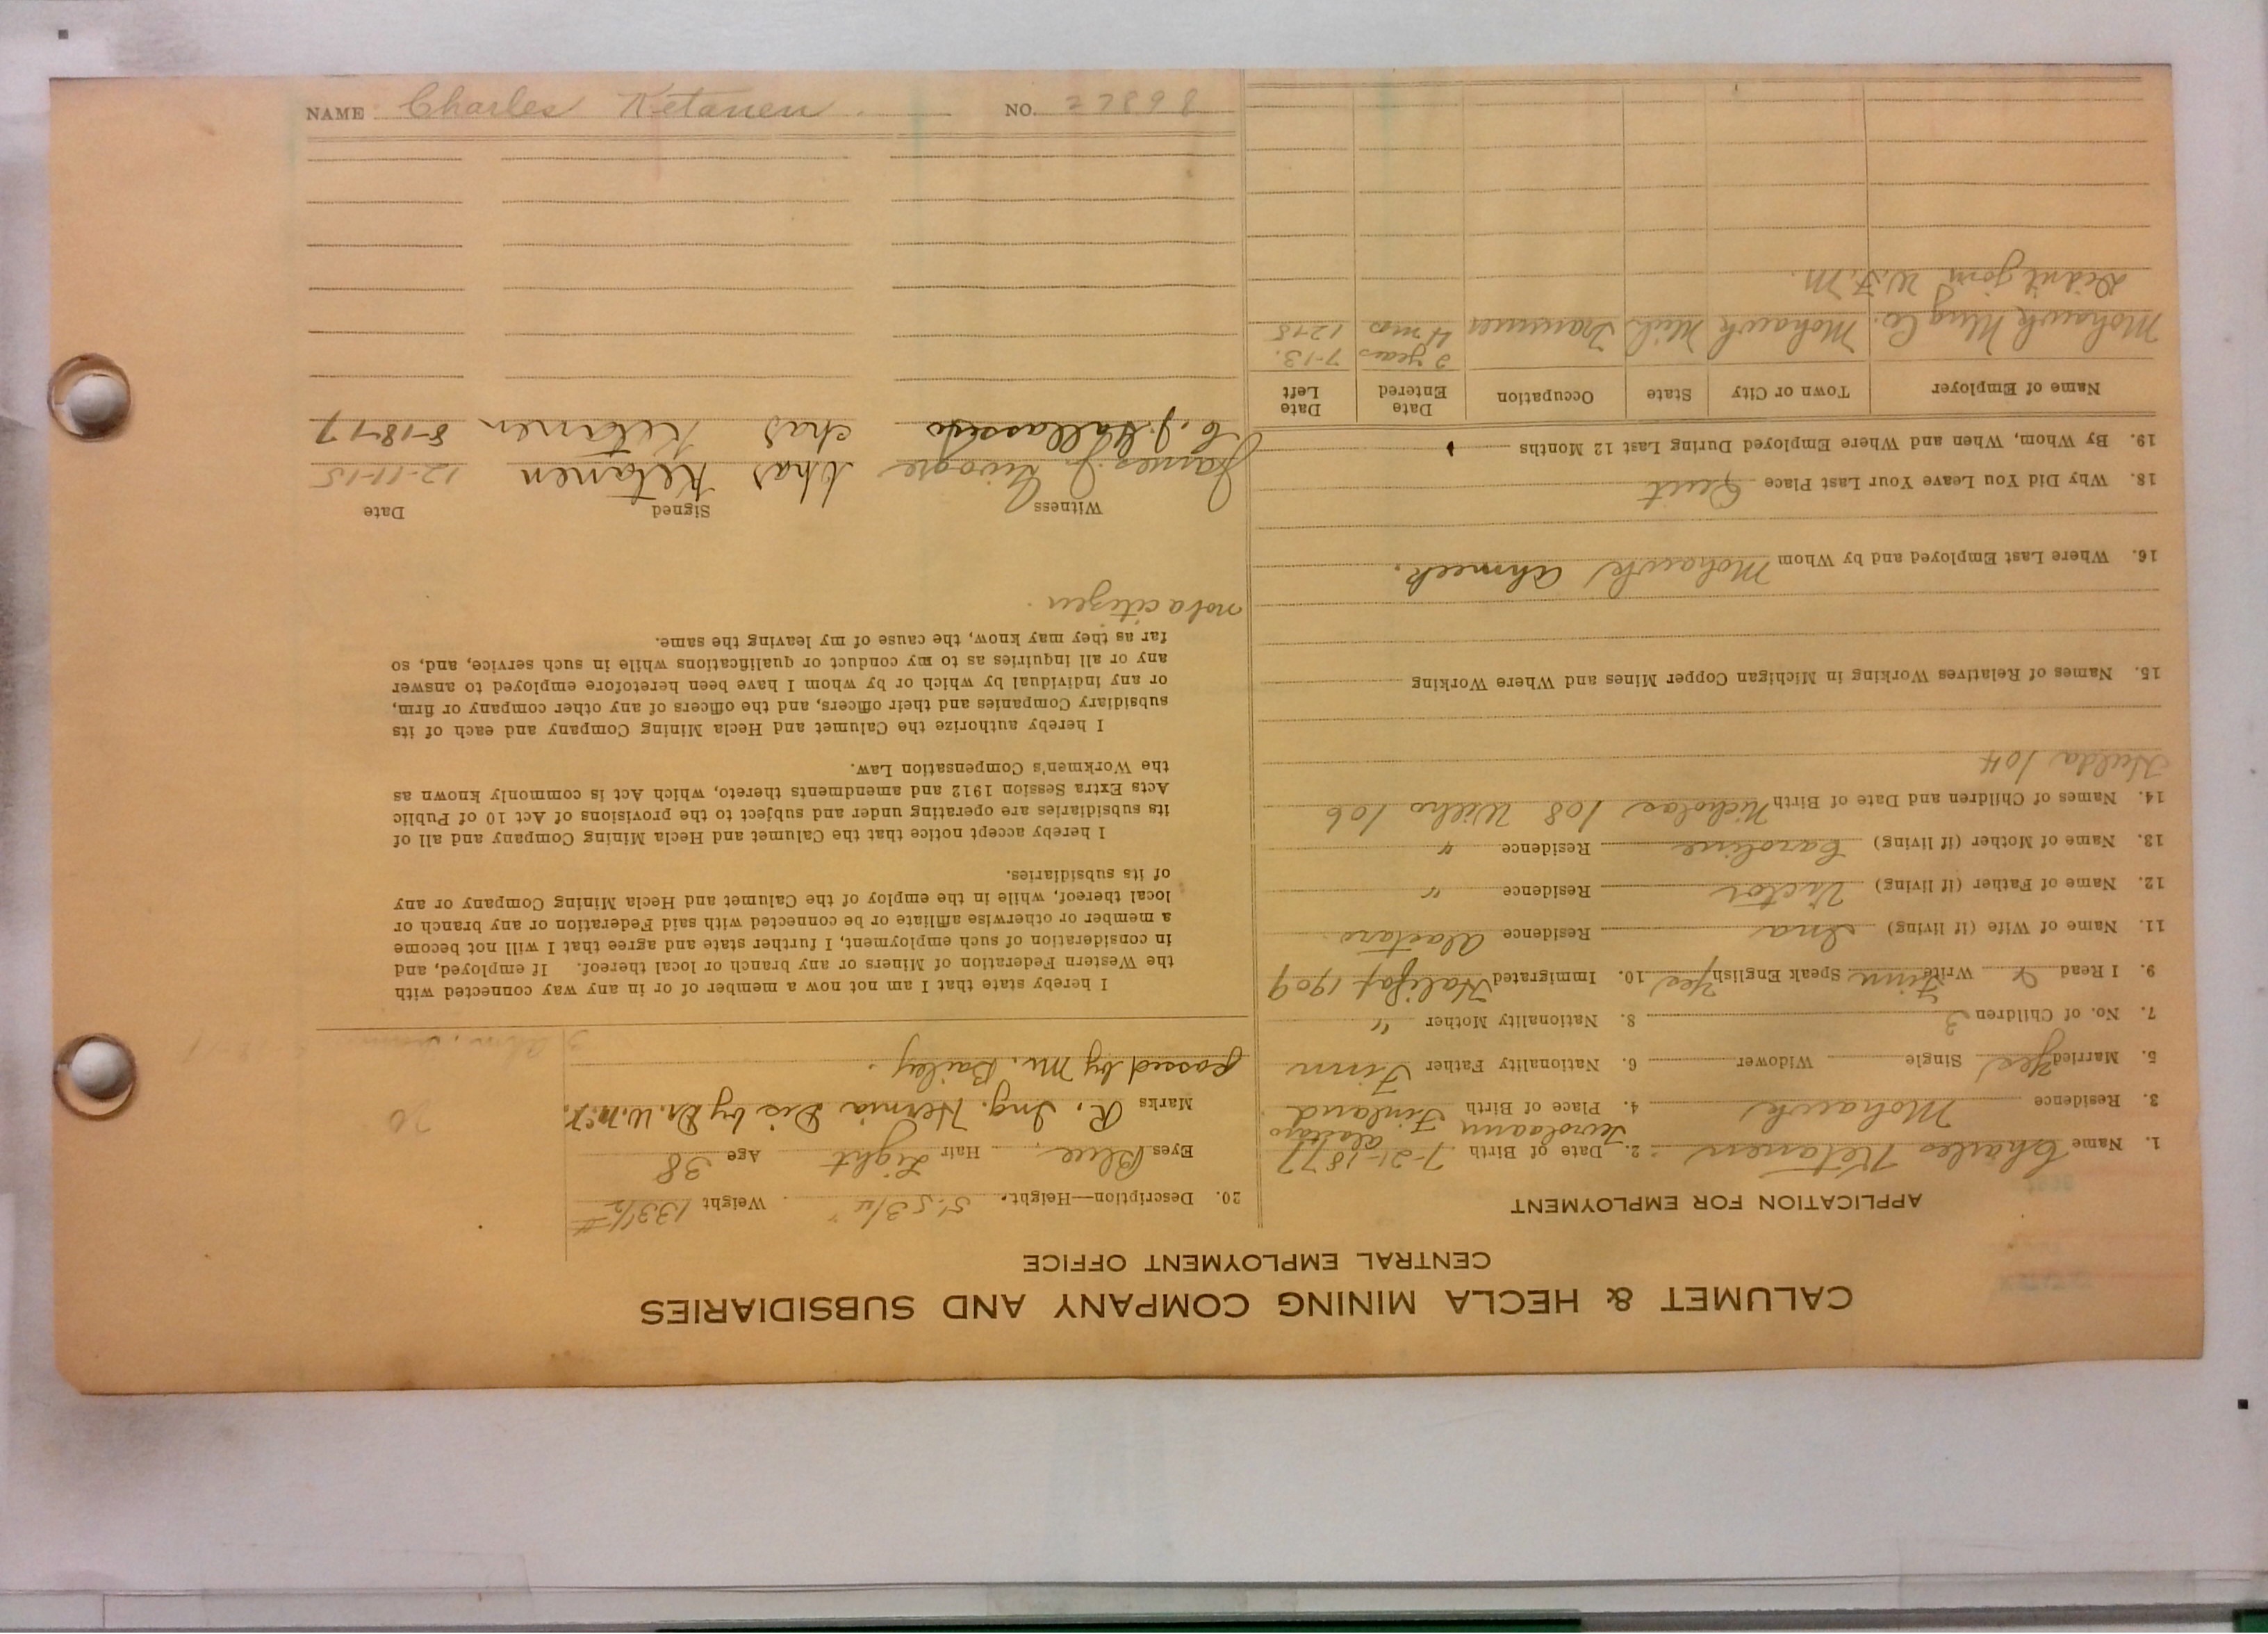 CALUMET & HECLA MINING COMPANY AND SUBSIDIARIES
CENTRAL EMPLOYMENT OFFICE
APPLICATION FOR EMPLOYMENT
1. Name Charles Ketanen 2. Date of Birth 7-21-1877
3. Residence Mohawk 4. Place of Birth Finland
5. Married Yes Single Widower 6. Nationality Father Finn
7. No. of Children 3 8. Nationality Mother "
9. I Read & Write Finn Speak English Yes 10. Immigrated Halifax 1909
11. Name of Wife (if living) Ina Residence Alastaro
12. Name of Father (if living) Victor Residence "
13. Name of Mother (if living) Caroline Residence "
14. Names of Children and Date of Birth Nicholas 108 Wilho 106
Hilda 104
15. Names of Relatives Working in Michigan Copper Mines and Where Working
16. Where Last Employed and by Whom Mohawk Ahmeek.
18. Why Did You Leave Your Last Place Quit
19. By Whom, When and Where Employed During Last 12 Months
Name of Employer Town or City State Occupation Date Entered Date Left
2 years 7-13.
Mohawk Mng Co. Mohawk Mich Trammer 4 mos 12-15
Didn't join W.F.M.
20. Description—Height. 5'.5 3/4" Weight 133 1/2 #
Eyes Blue Hair Light Age 38
Marks R. Ing. Hernia Dis by Dr. W.McK.
passed by Mr. Bailey.
20
I hereby state that I am not now a member of or in any way connected with
the Western Federation of Miners or any branch or local thereof. If employed, and
in consideration of such employment, I further state and agree that I will not become
a member or otherwise affiliate or be connected with said Federation or any branch or
local thereof, while in the employ of the Calumet and Hecla Mining Company or any
of its subsidiaries.
I hereby accept notice that the Calumet and Hecla Mining Company and all of
its subsidiaries are operating under and subject to the provisions of Act 10 of Public
Acts Extra Session 1912 and amendments thereto, which Act is commonly known as
the Workmen's Compensation Law.
I hereby authorize the Calumet and Hecla Mining Company and each of its
subsidiary Companies and their officers, and the officers of any other company or firm,
or any individual by which or by whom I have been heretofore employed to answer
any or all inquiries as to my conduct or qualifications while in such service, and, so
far as they may know, the cause of my leaving the same.
not a citizen.
Witness Signed Date
James Chas Ketanen 12-11-15
Chas Ketanen 8-18-17
NAME Charles Ketanen. NO. 27898